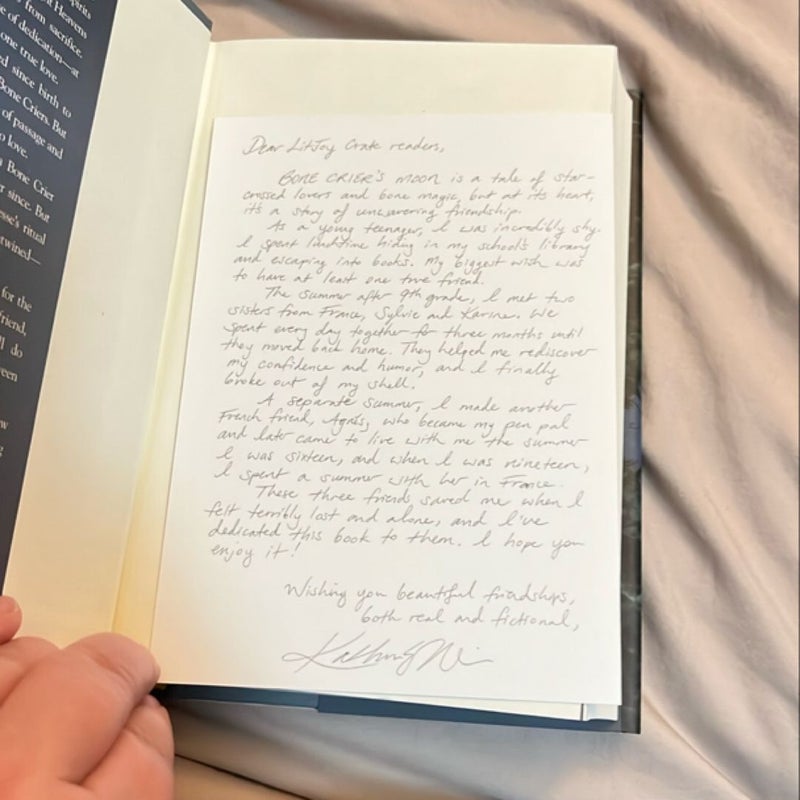 of dedication—at
one true love.
since birth to
Bone Criers. But
of passage and
o love.
a Bone Crier
r since. But
esse's ritual
twined—
for the
friend,
ll do
veen
Dear LitJoy Crate readers,
BONE CRIER'S MOON is a tale of star-
crossed lovers and bone magic, but at its heart,
it's a story of unwavering friendship.
As a young teenager, I was incredibly shy.
I spent lunchtime hiding in my school's library
and escaping into books. My biggest wish was
to have at least one true friend.
The summer after 9th grade, I met two
sisters from France, Sylvie and Karine. We
spent every day together for three months until
they moved back home. They helped me rediscover
my confidence and humor, and I finally
broke out of my shell.
A separate summer, I made another
French friend, Agnès, who became my pen pal
and later came to live with me the summer
I was sixteen, and when I was nineteen,
I spent a summer with her in France.
These three friends saved me when I
felt terribly lost and alone, and I've
dedicated this book to them. I hope you
enjoy it!
Wishing you beautiful friendships,
both real and fictional,